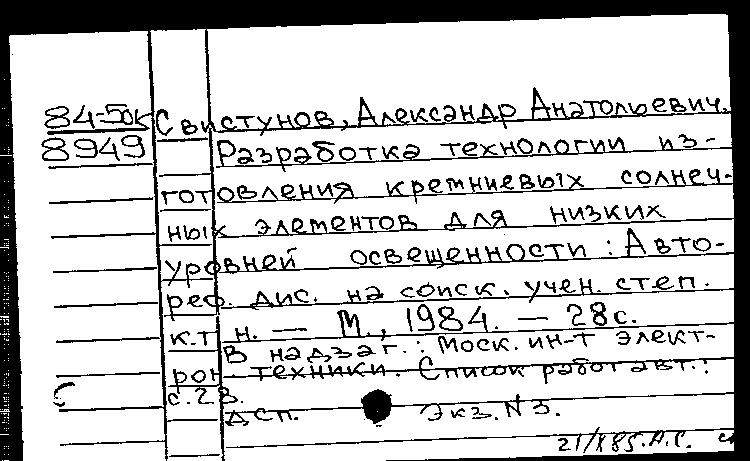 84-50к Свистунов, Александр Анатольевич.
8949 Разработка технологии из-
готовления кремниевых солнеч-
ных элементов для низких
уровней освещенности: Авто-
реф. дис. на соиск. учен. степ.
к.т.н. — М., 1984. — 28с.
В надзаг.: Моск. ин-т элект-
рон техники. Список работ авт.:
с. 28.
ДСП. Экз. N 3.